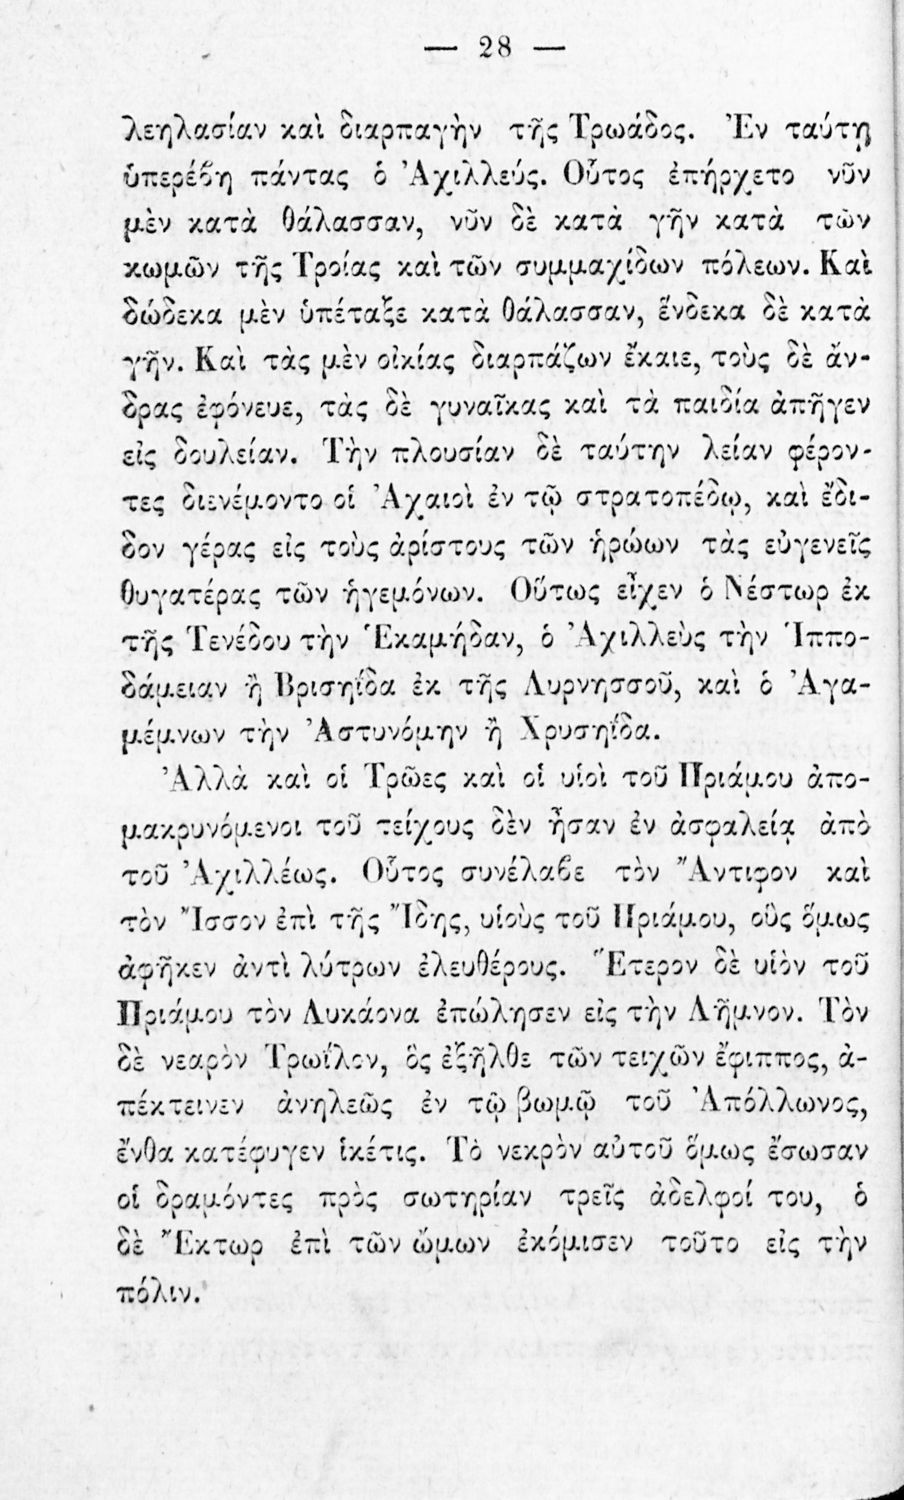 — 28 —
λεηλασίαν καὶ διαρπαγὴν τῆς Τρωάδος. Ἐν ταύτῃ
ὑπερέϐη πάντας ὁ Ἀχιλλεύς. Οὗτος ἐπήρχετο νῦν
μὲν κατὰ θάλασσαν, νῦν δὲ κατὰ γῆν κατὰ τῶν
κωμῶν τῆς Τροίας καὶ τῶν συμμαχίδων πόλεων. Καὶ
δώδεκα μὲν ὑπέταξε κατὰ θάλασσαν, ἕνδεκα δὲ κατὰ
γῆν. Καὶ τὰς μὲν οἰκίας διαρπάζων ἔκαιε, τοὺς δὲ ἄν-
δρας ἐφόνευε, τὰς δὲ γυναῖκας καὶ τὰ παιδία ἀπῆγεν
εἰς δουλείαν. Τὴν πλουσίαν δὲ ταύτην λείαν φέρον-
τες διενέμοντο οἱ Ἀχαιοὶ ἐν τῷ στρατοπέδῳ, καὶ ἔδι-
δον γέρας εἰς τοὺς ἀρίστους τῶν ἡρώων τὰς εὐγενεῖς
θυγατέρας τῶν ἡγεμόνων. Οὕτως εἶχεν ὁ Νέστωρ ἐκ
τῆς Τενέδου τὴν Ἑκαμήδαν, ὁ Ἀχιλλεὺς τὴν Ἱππο-
δάμειαν ἢ Βρισηΐδα ἐκ τῆς Λυρνησσοῦ, καὶ ὁ Ἀγα-
μέμνων τὴν Ἀστυνόμην ἢ Χρυσηΐδα.
Ἀλλὰ καὶ οἱ Τρῶες καὶ οἱ υἱοὶ τοῦ Πριάμου ἀπο-
μακρυνόμενοι τοῦ τείχους δὲν ἦσαν ἐν ἀσφαλείᾳ ἀπὸ
τοῦ Ἀχιλλέως. Οὗτος συνέλαϐε τὸν Ἄντιφον καὶ
τὸν Ἴσσον ἐπὶ τῆς Ἴδης, υἱοὺς τοῦ Πριάμου, οὓς ὅμως
ἀφῆκεν ἀντὶ λύτρων ἐλευθέρους. Ἕτερον δὲ υἱὸν τοῦ
Πριάμου τὸν Λυκάονα ἐπώλησεν εἰς τὴν Λῆμνον. Τὸν
δὲ νεαρὸν Τρωΐλον, ὃς ἐξῆλθε τῶν τειχῶν ἔφιππος, ἀ-
πέκτεινεν ἀνηλεῶς ἐν τῷ βωμῷ τοῦ Ἀπόλλωνος,
ἔνθα κατέφυγεν ἱκέτις. Τὸ νεκρὸν αὐτοῦ ὅμως ἔσωσαν
οἱ δραμόντες πρὸς σωτηρίαν τρεῖς ἀδελφοί του, ὁ
δὲ Ἕκτωρ ἐπὶ τῶν ὤμων ἐκόμισεν τοῦτο εἰς τὴν
πόλιν.